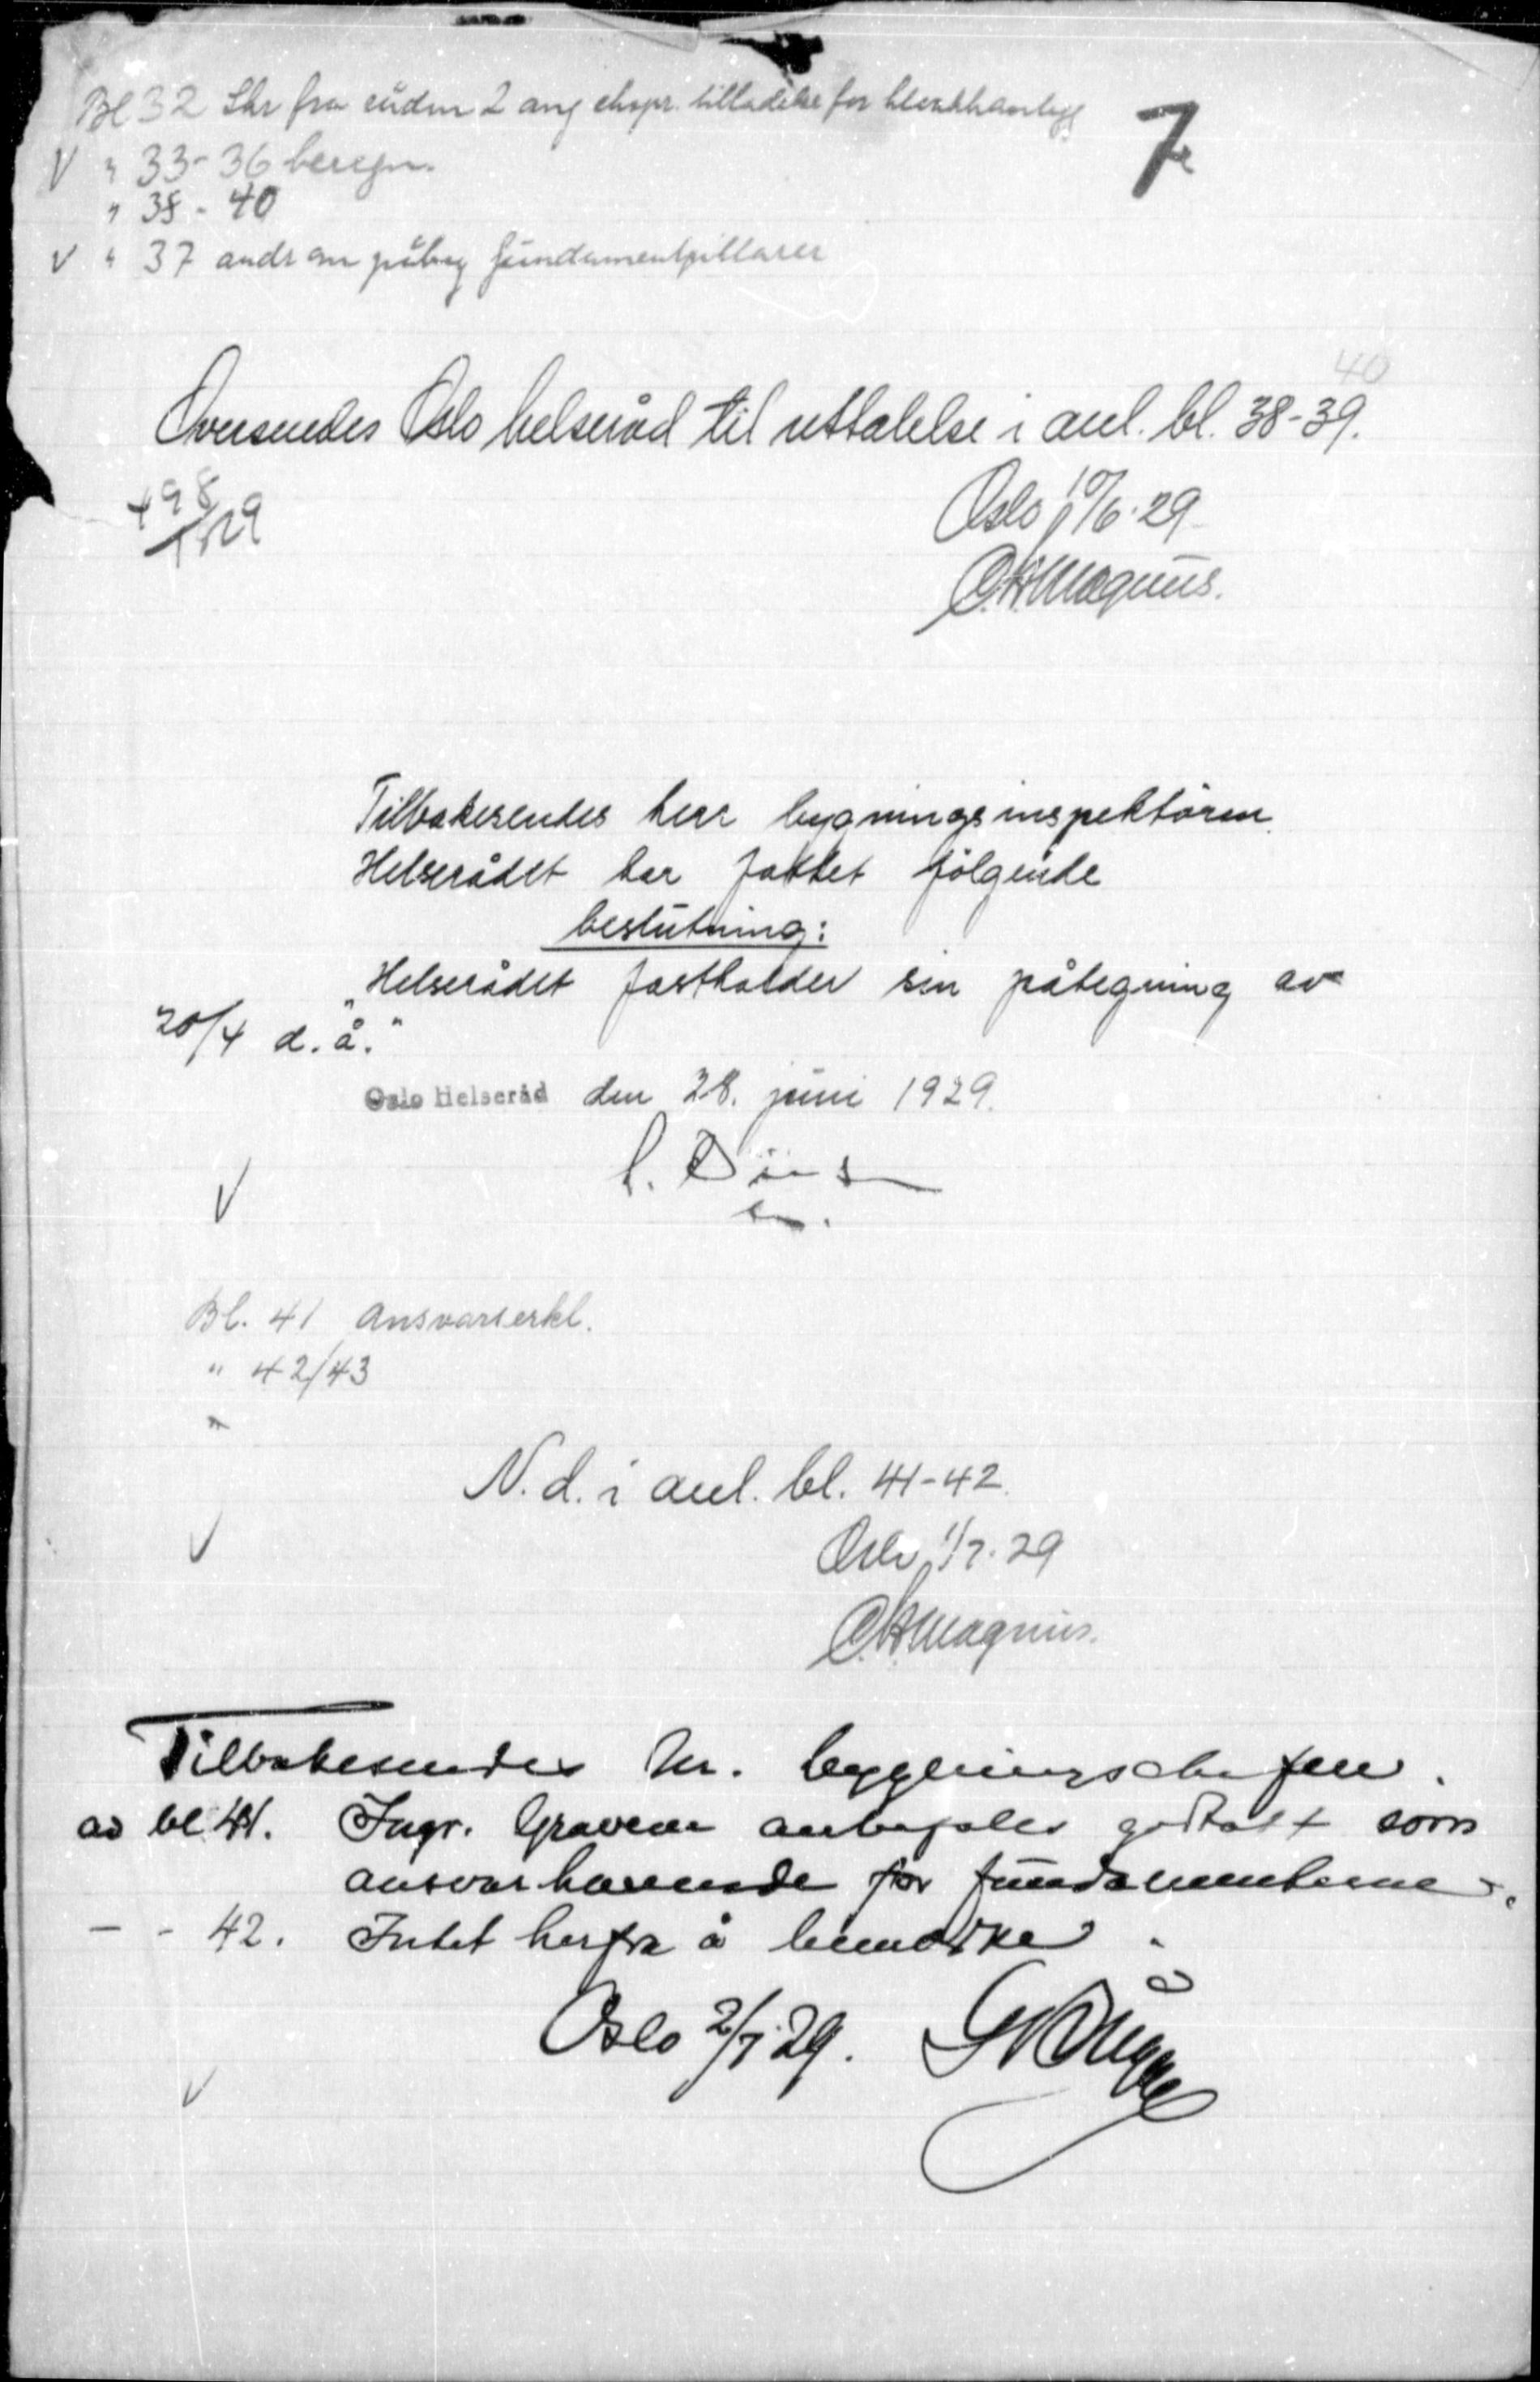 Bl 32 Skr fra rådm 2 ang ekspr. tilladelse for
7
V " 33-36 beregn.
" 38-40
V " 37 andr om påbeg fundamentpillarer
40
Oversendes Oslo helseråd til uttalelse i anl. bl. 38-39.
Oslo 10/6.29
O.K. Magnus.
Tilbakesendes herr bygningsinspektören.
Helserådet har fattet fölgende
beslutning:
"Helserådet fastholder sin påtegning av
20/4 d. å."
Oslo Helseråd den 28. juni 1929.
V
Bl. 41 Ansvarserkl.
" 42/43
"
N. d. i anl. bl. 41-42.
V Oslo 1/7.29
O.K. Magnus.
Tilbakesendes hr. bygningschefen.
ad bl 41. Ingr. Graven anbefales godtatt som
ansvarhavende for fundamenterne.
- - 42. Intet herfra å bemerke.
Oslo 2/7.29.
V